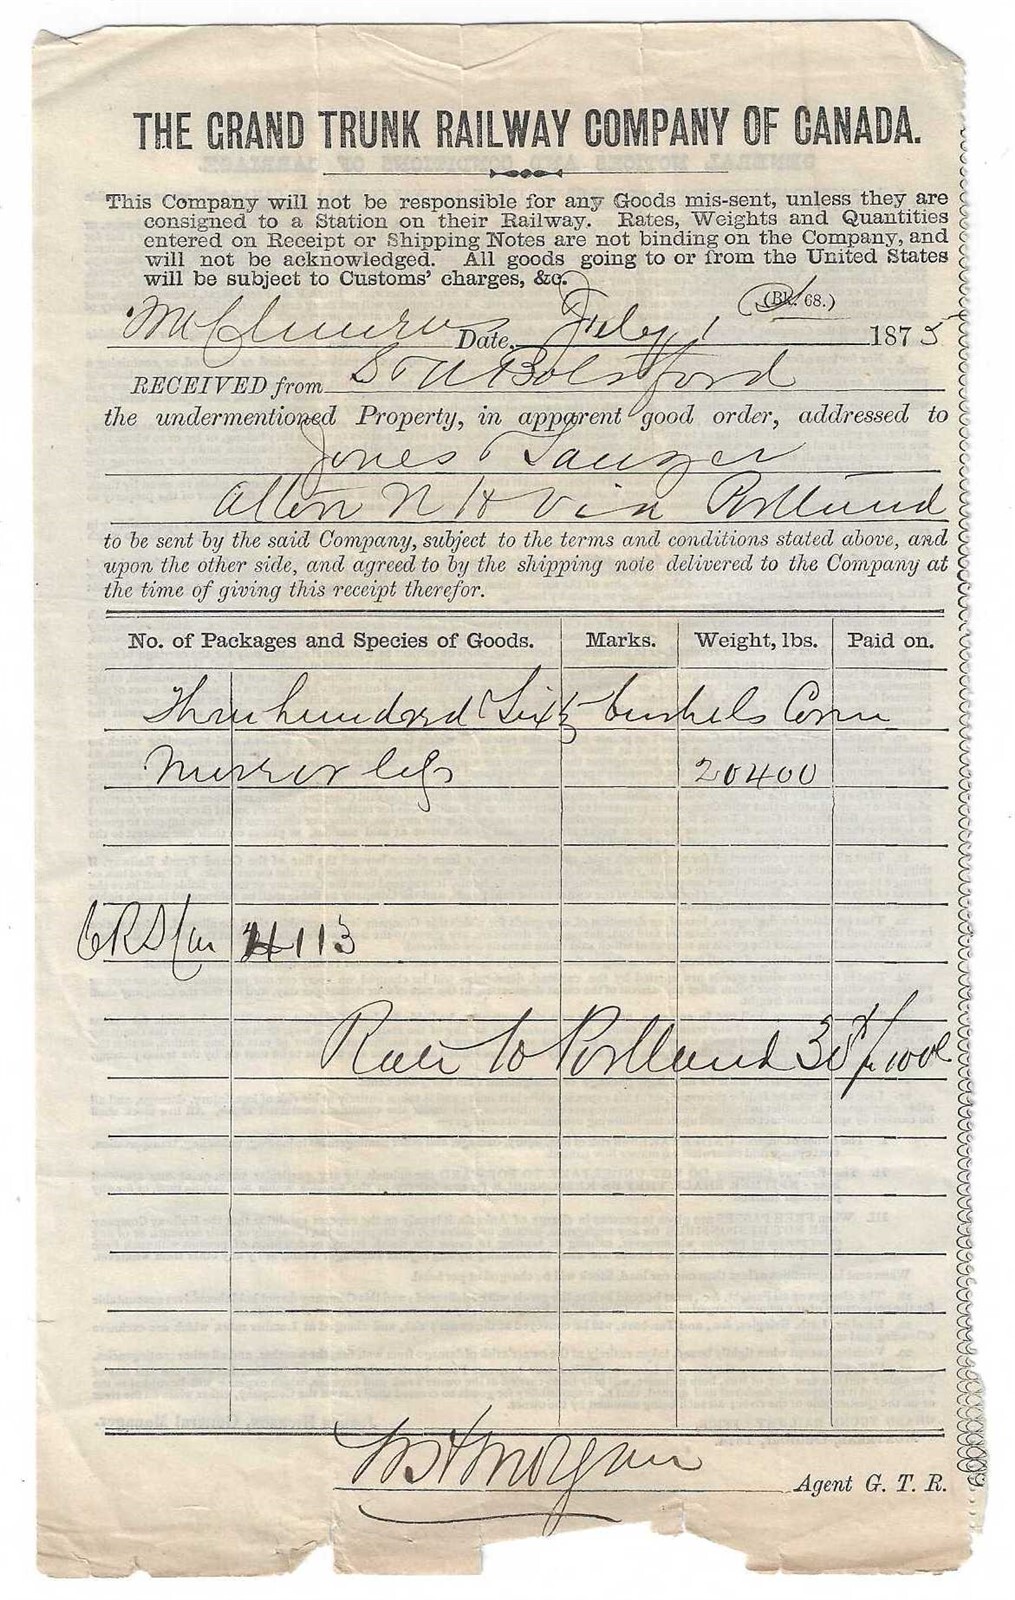 THE GRAND TRUNK RAILWAY COMPANY OF CANADA.
This Company will not be responsible for any Goods mis-sent, unless they are
consigned to a Station on their Railway. Rates, Weights and Quantities
entered on Receipt or Shipping Notes are not binding on the Company, and
will not be acknowledged. All goods going to or from the United States
will be subject to Customs' charges, &c.
(Bk. 68.)
Date, July 1 1875
RECEIVED from
the undermentioned Property, in apparent good order, addressed to
Jones & Sawyer
Alton N H Via Portland
to be sent by the said Company, subject to the terms and conditions stated above, and
upon the other side, and agreed to by the shipping note delivered to the Company at
the time of giving this receipt therefor.
No. of Packages and Species of Goods. Marks. Weight, lbs. Paid on.
Three hundred Sixty bushels Corn
more or less 20400
Car 4113
Rate to Portland 100
Morgan
Agent G. T. R.